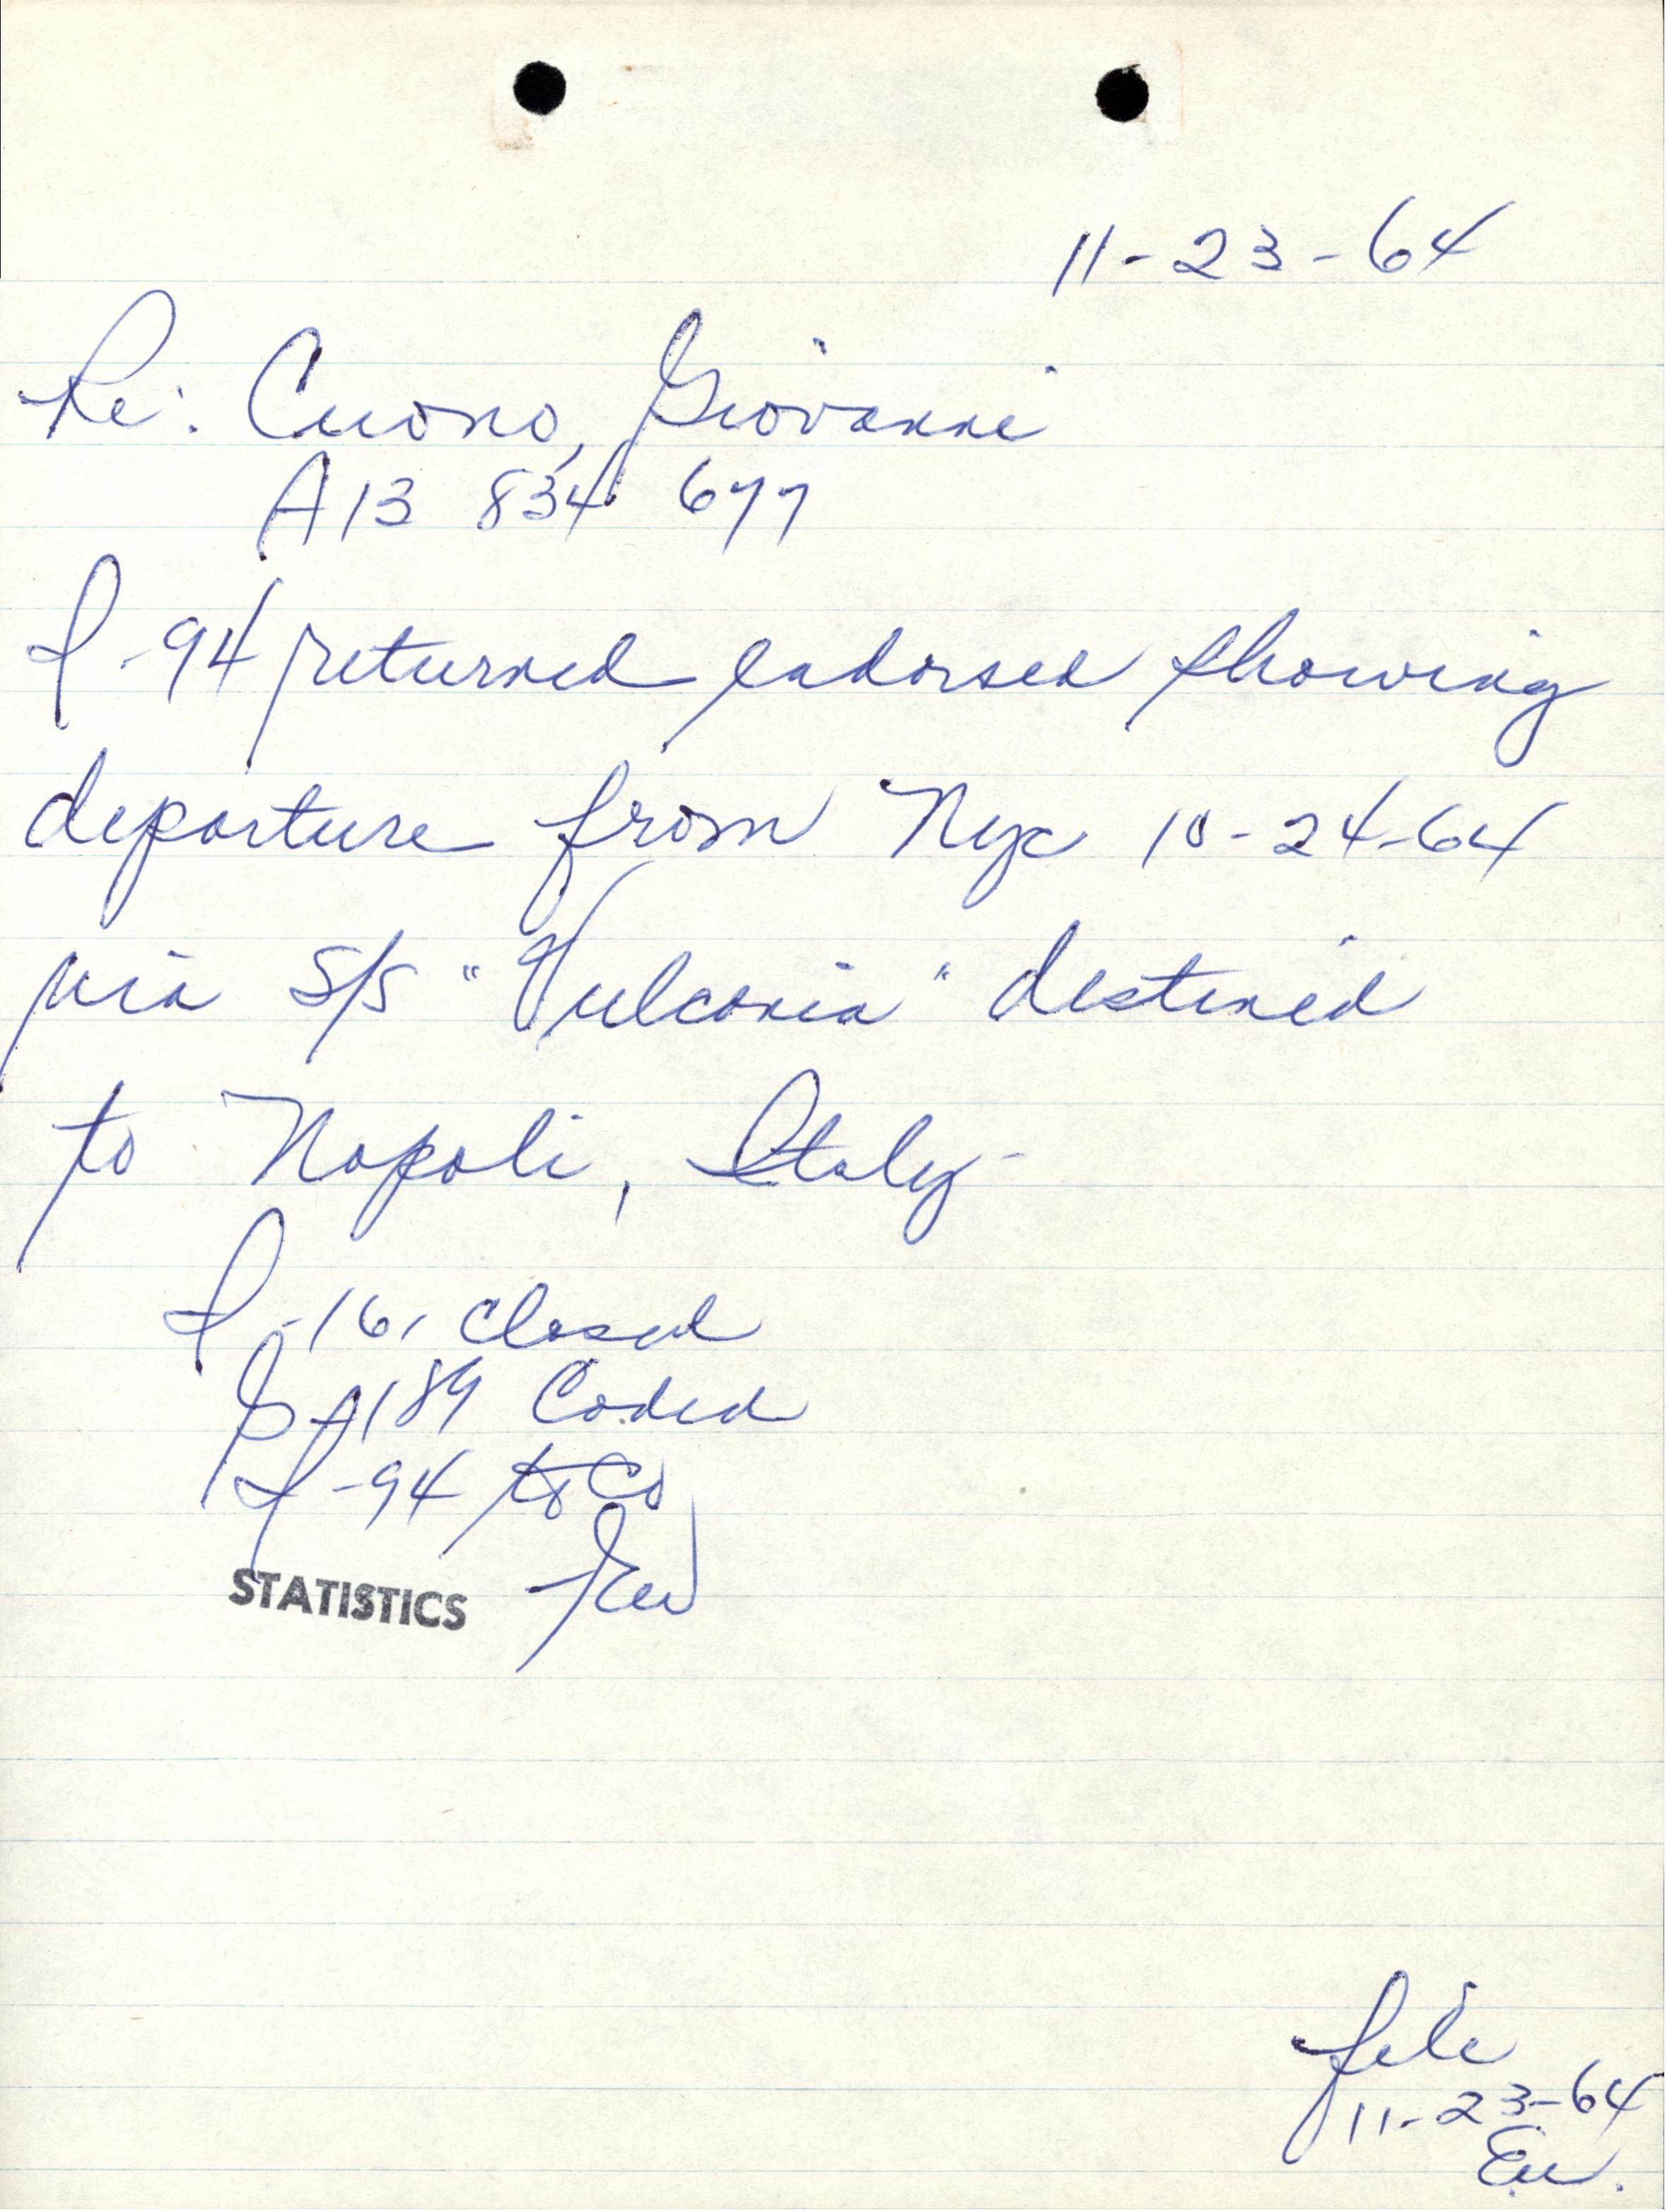 11-23-64
Re: Cuono, Giovanni
A13 834 677
I-94 returned endorsed showing
departure from Nyc 10-24-64
via S/S "Vulcania" destined
to Napoli, Italy-
I-161 Closed
G-189 Coded
I-94 to Co
STATISTICS
file
11-23-64